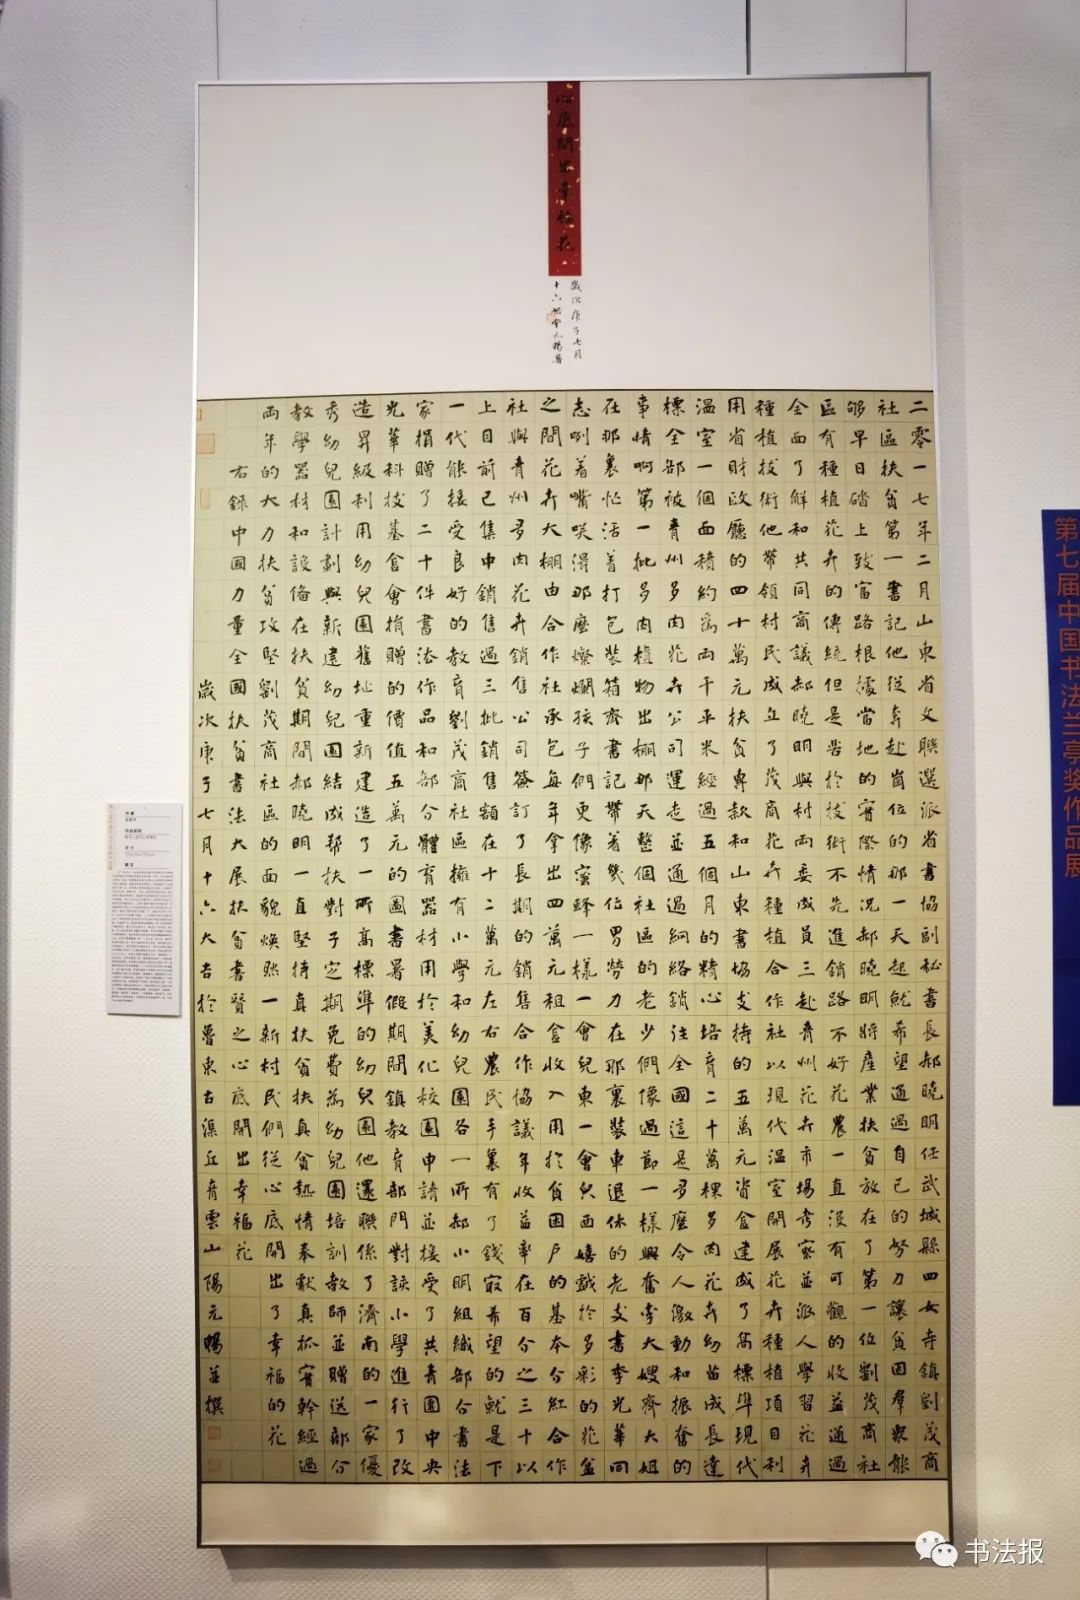 心底開出幸福花
歲次庚子七月
二零一七年二月山東省文聯選派省書協副秘書長郝曉明任武城縣四女寺鎮劉茂商
社區扶貧第一書記他從奔赴崗位的那一天起就希望通過自己的努力讓貧困羣衆能
够早日踏上致富路根據當地的實際情況郝曉明將産業扶貧放在了第一位劉茂商社
區有種植花卉的傳統但是苦於技術不先進銷路不好花農一直没有可觀的收益通過
全面了解和共同商議郝曉明與村兩委成員三赴青州花卉市場考察並派人學習花卉
種植技術他帶領村民成立了茂商花卉種植合作社以現代温室開展花卉種植項目利
用省財政廳的四十萬元扶貧專款和山東書協支持的五萬元資金建成了高標準現代
温室一個面積約爲兩千平米經過五個月的精心培育二十萬棵多肉花卉幼苗成長達
標全部被青州多肉花卉公司運走並通過網絡銷往全國這是多麽令人激動和振奮的
事情啊第一批多肉植物出棚那天整個社區的老少們像過節一樣興奮李大嫂齊大姐
在那裏忙活着打包裝箱齊書記帶着幾位男勞力在那裏裝車退休的老支書李光華同
志咧着嘴咲得那麽燦爛孩子們更像蜜蜂一樣一會兒東一會兒西嬉戲於多彩的花盆
之間花卉大棚由合作社承包每年拿出四萬元租金收入用於貧困户的基本分紅合作
社與青州多肉花卉銷售公司簽訂了長期的銷售合作協議年收益率在百分之三十以
上目前已集中銷售過三批銷售額在十二萬元左右農民手裏有了錢最希望的就是下
一代能接受良好的教育劉茂商社區擁有小學和幼兒園各一所郝小明組織部分書法
家捐贈了二十件書法作品和部分體育器材用於美化校園申請並接受了共青團中央
光華科技基金會捐贈的價值五萬元的圖書暑假期間鎮教育部門對該小學進行了改
造昇級利用幼兒園舊址重新建造了一所高標準的幼兒園他還聯係了濟南的一家優
秀幼兒園計劃與新建幼兒園結成幫扶對子定期免費爲幼兒園培訓教師並贈送部分
教學器材和設備在扶貧期間郝曉明一直堅持真扶貧扶真貧熱情奉獻真抓實幹經過
兩年的大力扶貧攻堅劉茂商社區的面貌焕然一新村民們從心底開出了幸福的花
右録中國力量全國扶貧書法大展扶貧書賢之心底開出幸福花
歲次庚子七月十六大吉於魯東古渠丘青雲山陽元暢並撰
第七届中国书法兰亭奖作品展
书法报